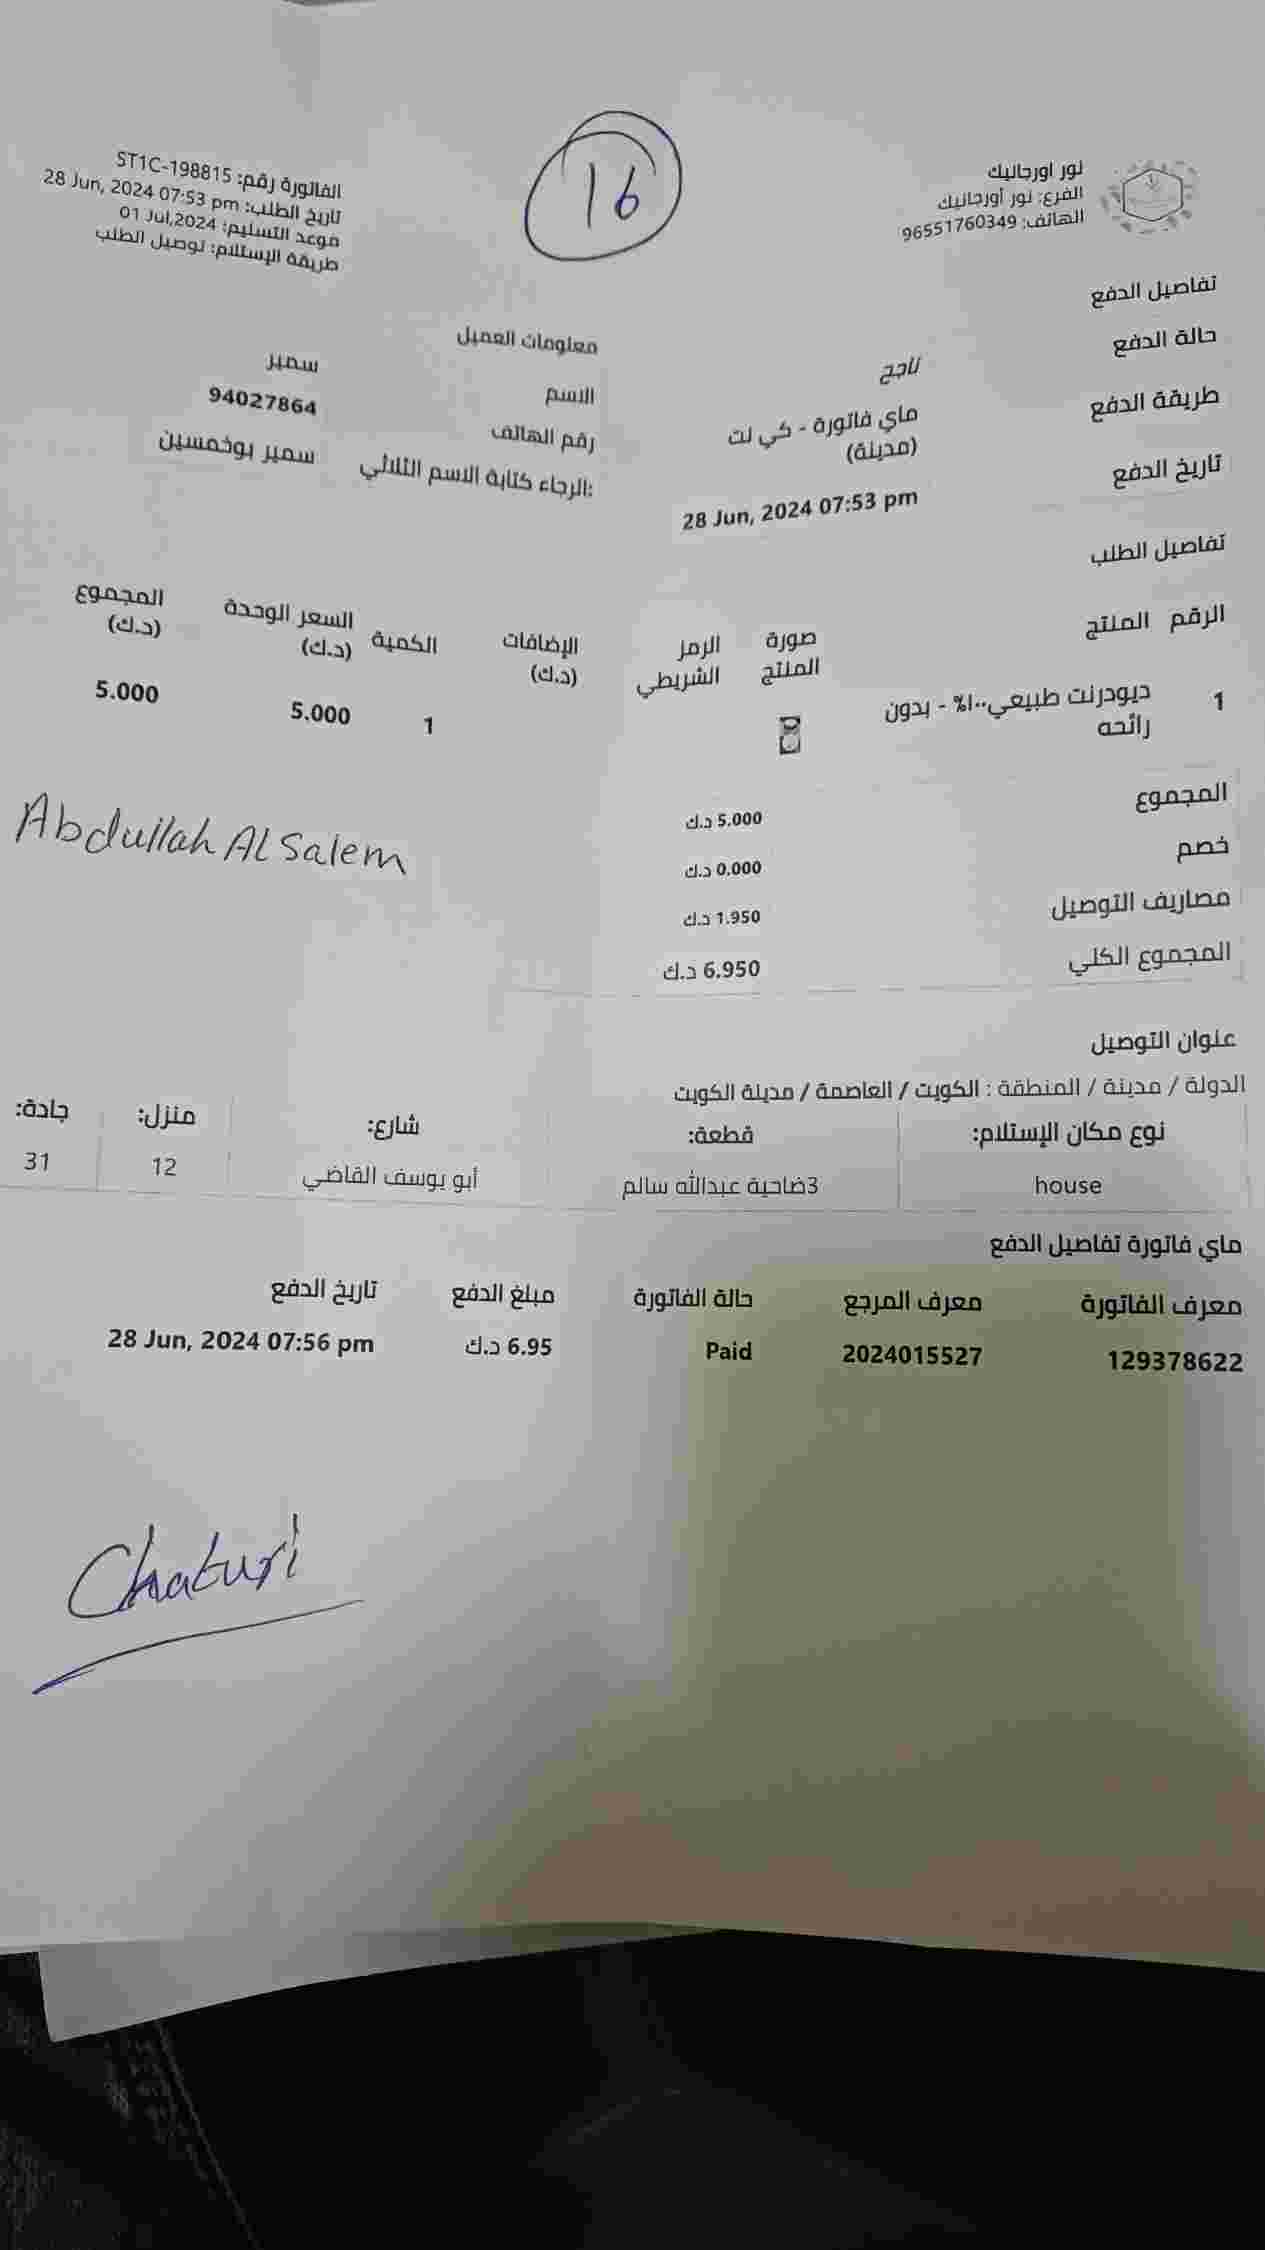 16
نور اورجانيك
الفرع: نور أورجانيك
الهاتف: 96551760349
الفاتورة رقم: ST1C-198815
تاريخ الطلب: 28 Jun, 2024 07:53 pm
موعد التسليم: 01 Jul,2024
طريقة الإستلام: توصيل الطلب
تفاصيل الدفع
حالة الدفع ناجح
طريقة الدفع ماي فاتورة - كي نت
(مدينة)
تاريخ الدفع 28 Jun, 2024 07:53 pm
معلومات العميل
الاسم سمير
رقم الهاتف 94027864
الرجاء كتابة الاسم الثلاثي: سمير بوخمسين
تفاصيل الطلب
الرقم المنتج صورة المنتج الرمز الشريطي الإضافات (د.ك) الكمية السعر الوحدة (د.ك) المجموع (د.ك)
1 ديودرنت طبيعي١٠٠% - بدون رائحه 1 5.000 5.000
المجموع 5.000 د.ك
خصم 0.000 د.ك
مصاريف التوصيل 1.950 د.ك
المجموع الكلي 6.950 د.ك
Abdullah AL Salem
عنوان التوصيل
الدولة / مدينة / المنطقة : الكويت / العاصمة / مدينة الكويت
نوع مكان الإستلام: قطعة: شارع: منزل: جادة:
house 3ضاحية عبدالله سالم أبو يوسف القاضي 12 31
ماي فاتورة تفاصيل الدفع
معرف الفاتورة معرف المرجع حالة الفاتورة مبلغ الدفع تاريخ الدفع
129378622 2024015527 Paid 6.95 د.ك 28 Jun, 2024 07:56 pm
Chaturi